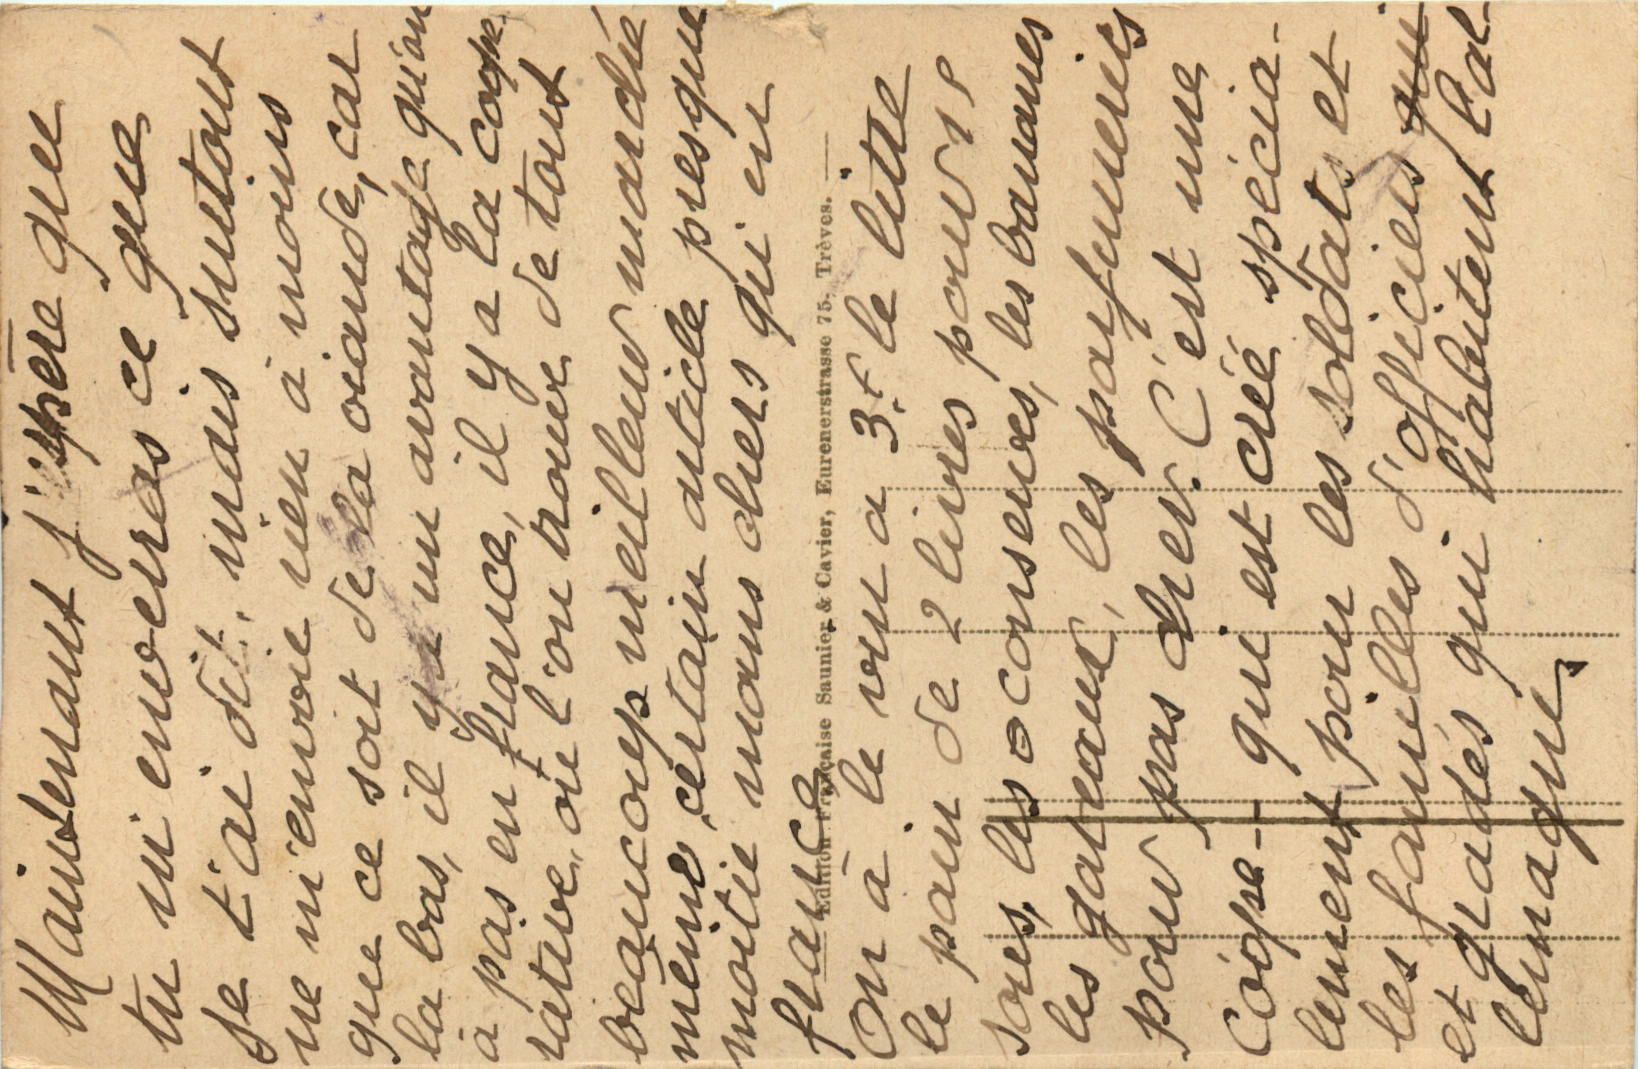 Maintenant j'espère que
tu m'enverras ce que
je t'ai dit, mais surtout
ne m'envoie rien à moins
que ce soit de la viande, car
la bas, il y a un avantage qui on
à pas en france, il y a la coope
rative, où l'on trouve de tout
beaucoup meilleur marché
même, certain article presque
moitié moins chers qui en
france
Edition Française Saunier & Cavier, Eurenerstrasse 75. Trèves.
On à le vin a 3.f le litre
le pain de 2 livres pour 18
sous, les conserves, les bananes
les gateaux, les parfumeries
pour pas cher. C'est une
coope – qui est créé spécia-
lement pour les soldats et
les familles d'officiers qui
et gradés qui habitent l'al-
lemagne.